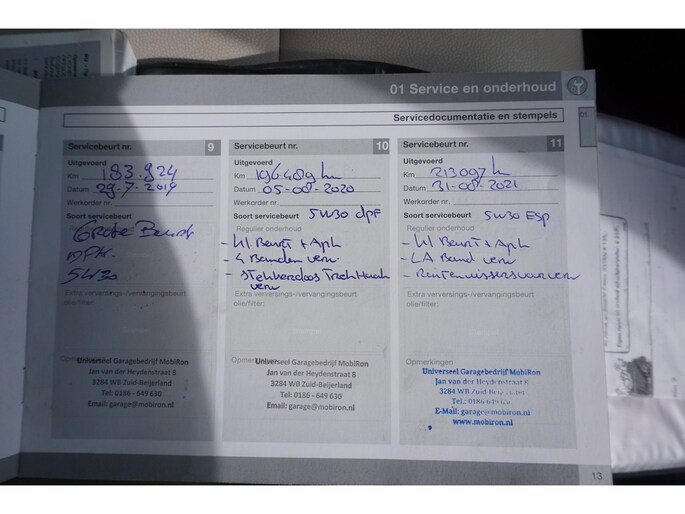 01 Service en onderhoud
Servicedocumentatie en stempels
01
Servicebeurt nr. 9
Uitgevoerd
Km 183.924
Datum 29-7-2019
Werkorder nr.
Soort servicebeurt
Grote Beurt
APK.
5W30
Extra verversings-/vervangingsbeurt
olie/filter:
Opmerkingen
Universeel Garagebedrijf MobiRon
Jan van der Heydenstraat 8
3284 WB Zuid-Beijerland
Tel: 0186 - 649 630
Email: garage@mobiron.nl
Servicebeurt nr. 10
Uitgevoerd
Km 196.489 km
Datum 05-08-2020
Werkorder nr.
Soort servicebeurt 5W30 dpf
Regulier onderhoud
- Kl Beurt + Apk
- 4 Banden verv
- Stekkerdoos Trekhaak
verv
Extra verversings-/vervangingsbeurt
olie/filter:
Universeel Garagebedrijf MobiRon
Jan van der Heydenstraat 8
3284 WB Zuid-Beijerland
Tel: 0186 - 649 630
Email: garage@mobiron.nl
Servicebeurt nr. 11
Uitgevoerd
Km 213097 km
Datum 31-08-2021
Werkorder nr.
Soort servicebeurt 5W30 ESP
Regulier onderhoud
- Kl Beurt + Apk
- LA Band verv
- Ruitenwissers voor verv
Extra verversings-/vervangingsbeurt
olie/filter:
Opmerkingen
Universeel Garagebedrijf MobiRon
Jan van der Heydenstraat 8
3284 WB Zuid-Beijerland
Tel.: 0186 649
E-Mail: garage@mobiron.nl
www.mobiron.nl
13